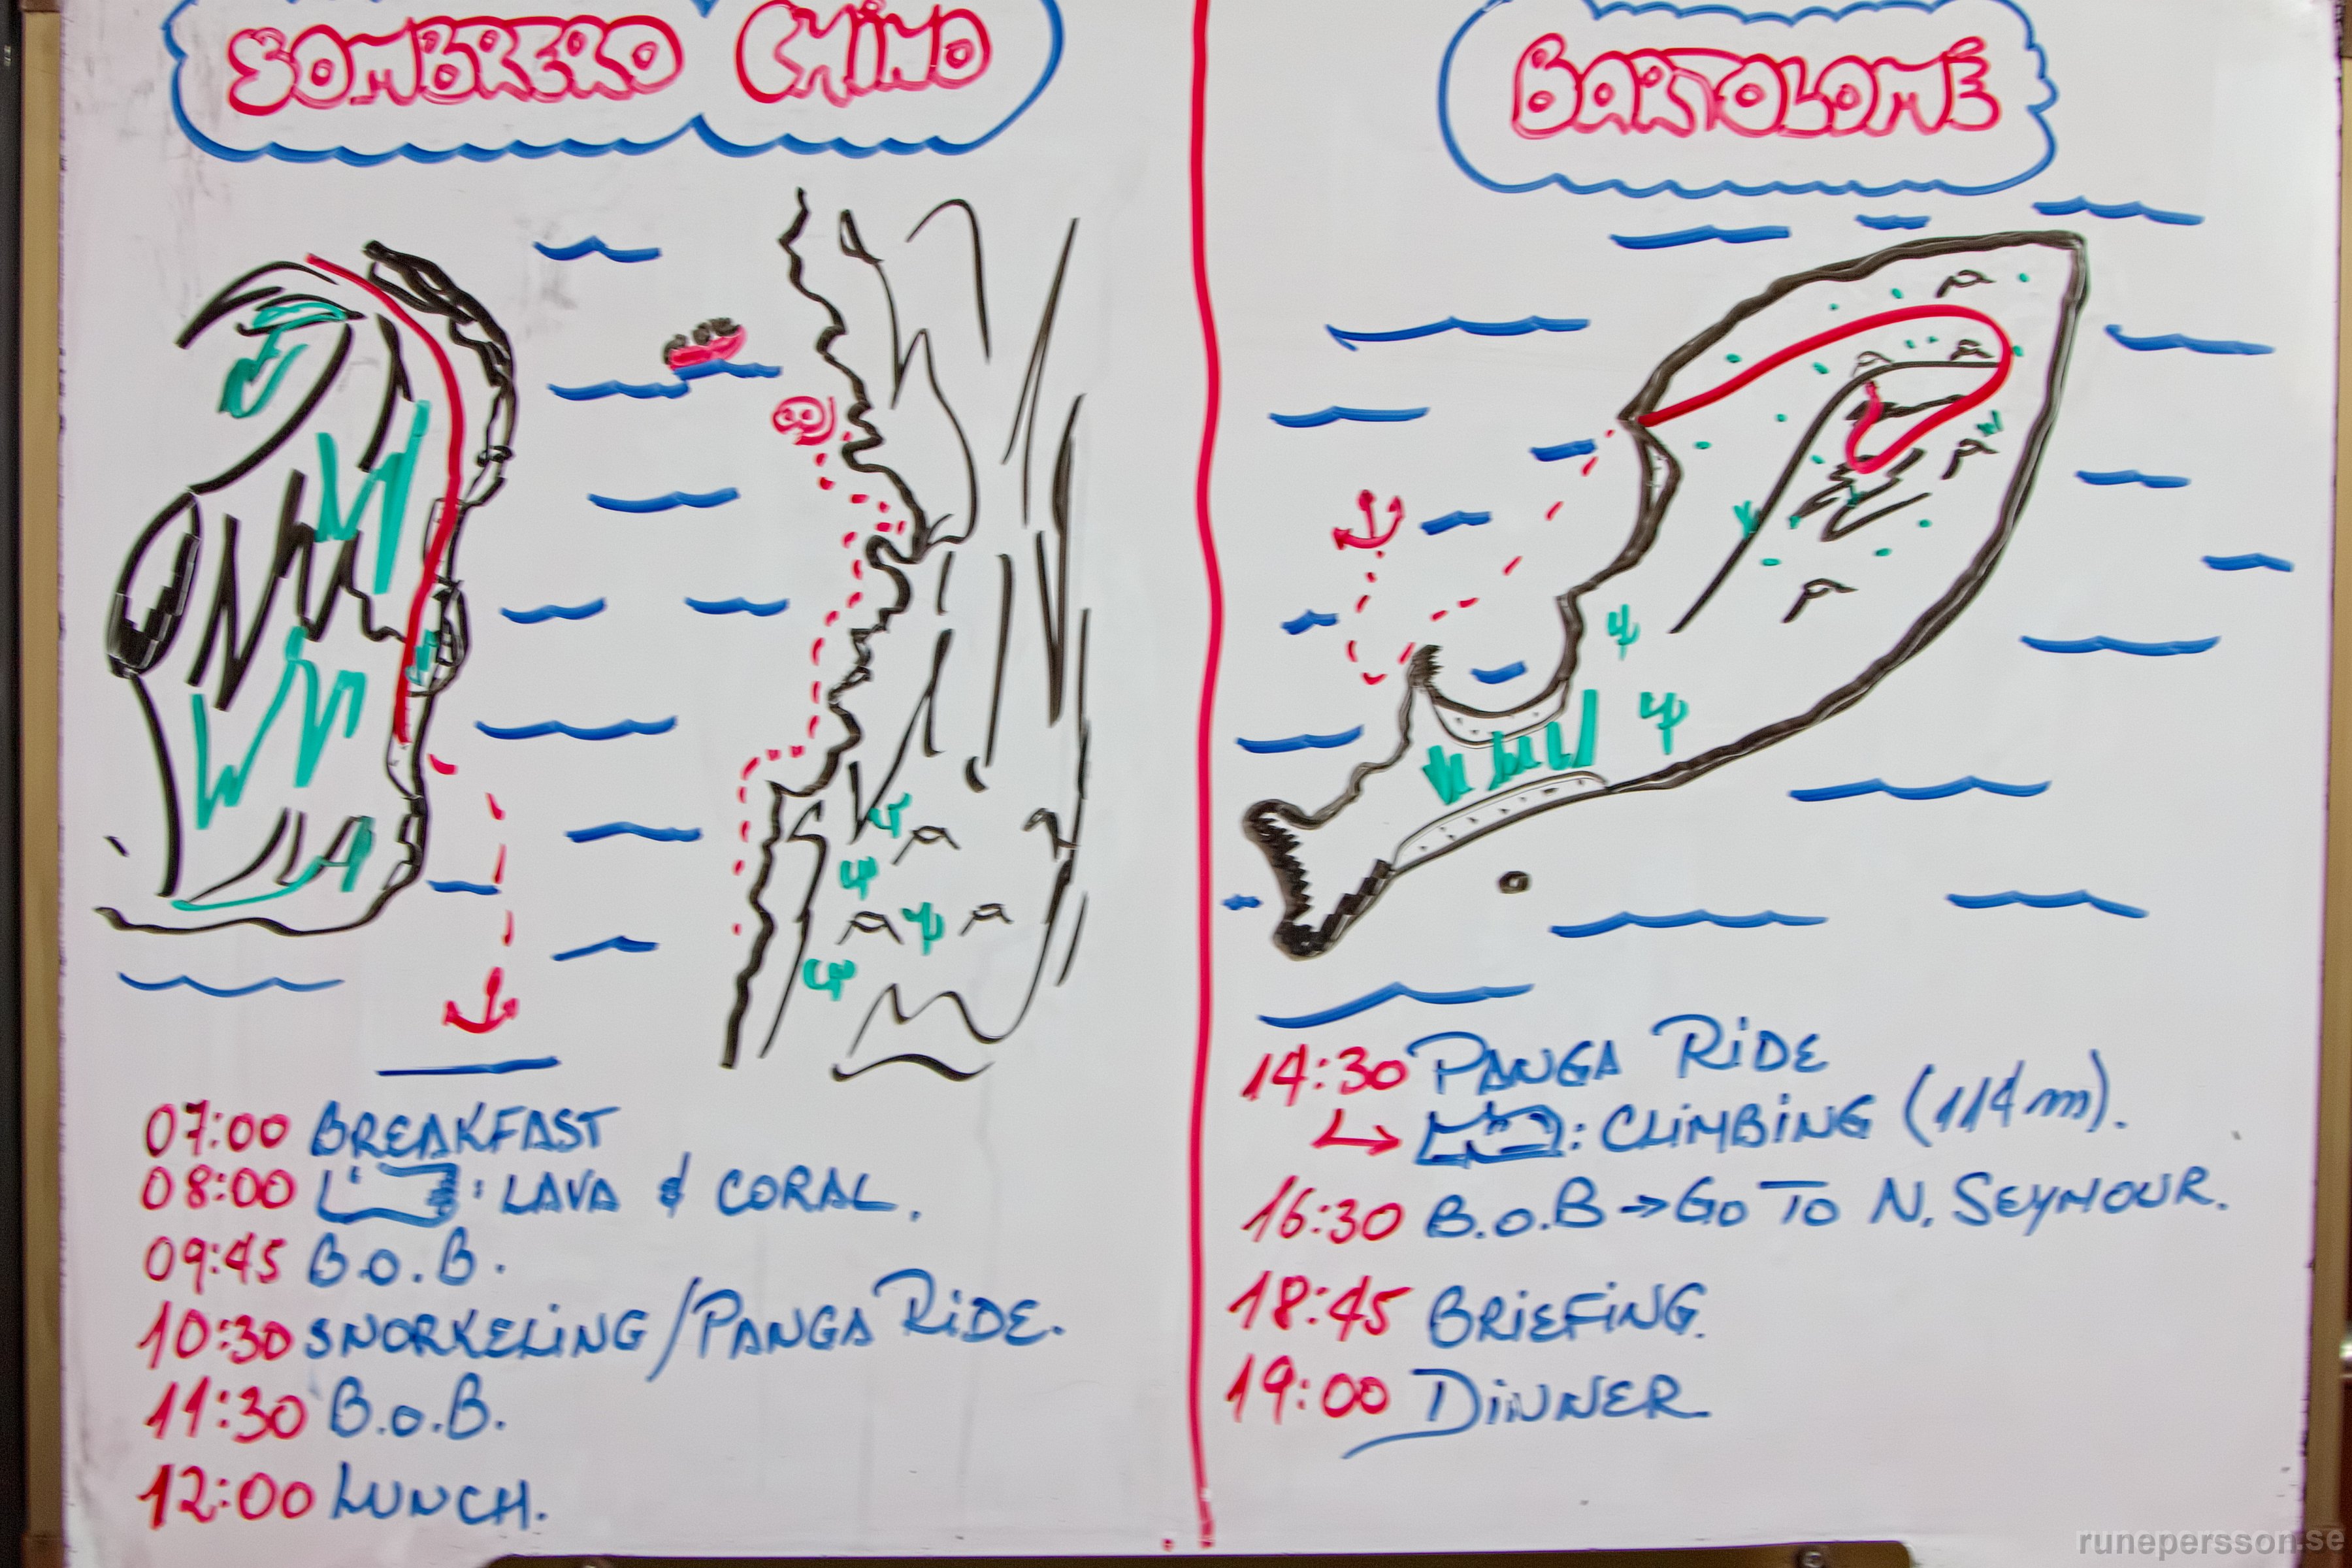 SOMBRERO CHINO
07:00 BREAKFAST
08:00 : LAVA & CORAL.
09:45 B.O.B.
10:30 SNORKELING/PANGA RIDE.
11:30 B.O.B.
12:00 LUNCH.
BARTOLOMÉ
14:30 PANGA RIDE
↳ : CLIMBING (114m).
16:30 B.O.B → GO TO N. SEYMOUR.
18:45 BRIEFING.
19:00 DINNER
runepersson.se